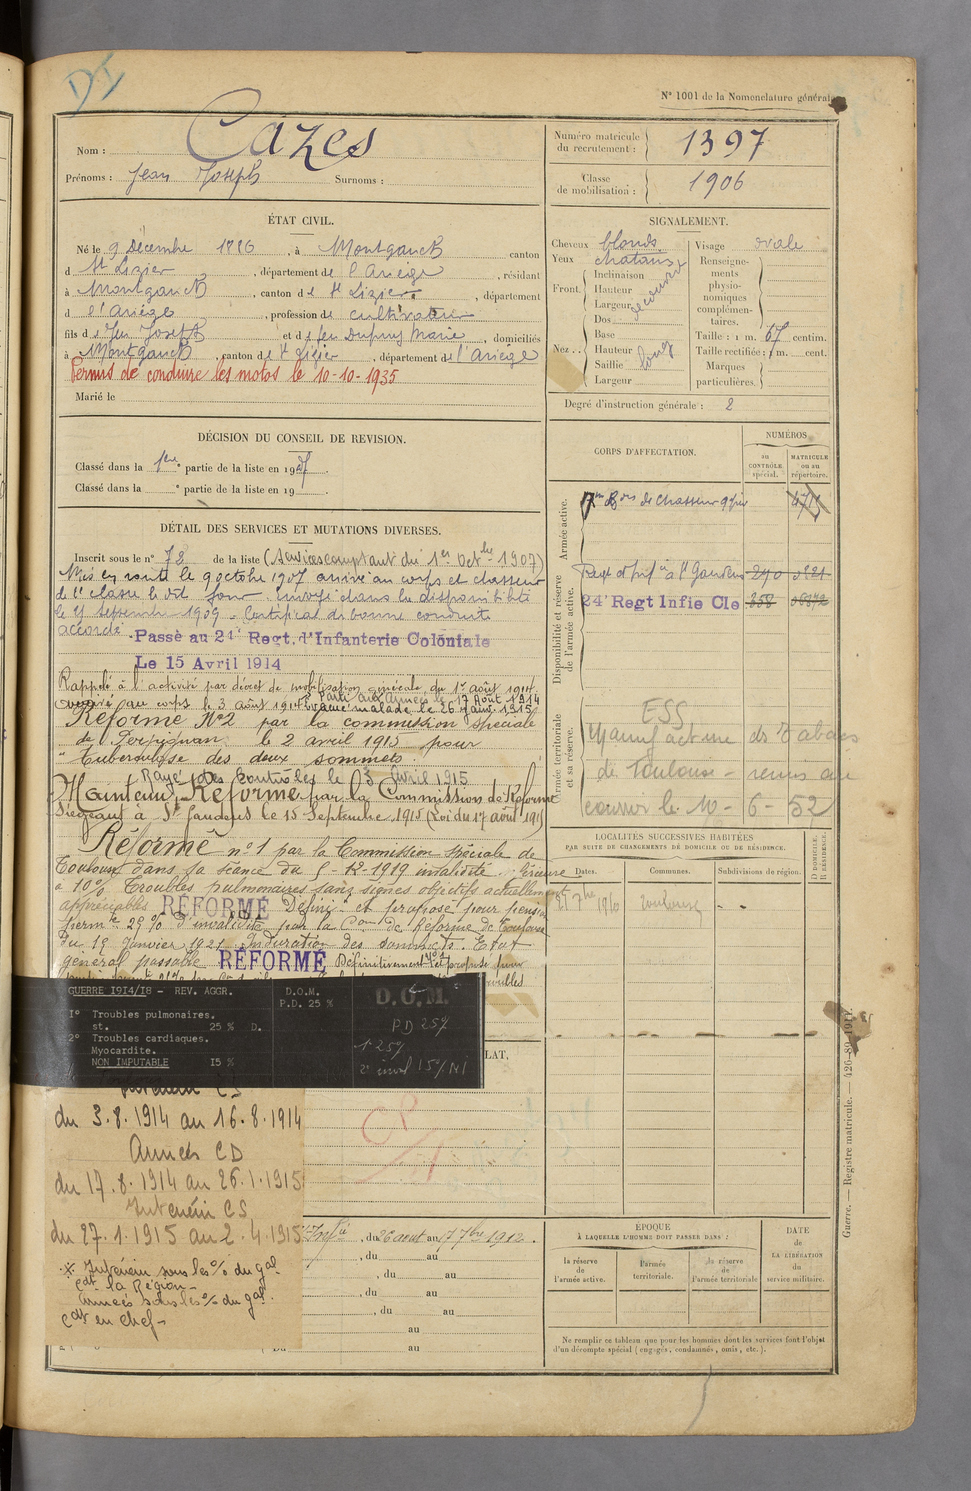 DI
N° 1001 de la Nomenclature générale
Nom : Cazes
Prénoms : Jean Joseph Surnoms :
Numéro matricule du recrutement : 1397
Classe de mobilisation : 1906
ÉTAT CIVIL.
Né le 9 Décembre 1886, à Montgauch canton
d St Lizier, département de l'Ariège, résidant
à Montgauch, canton d e St Lizier, département
d e l'Ariège, profession de cultivateur
fils d e feu Joseph et d e feu Dupuy Marie, domiciliés
à Montgauch, canton d e St Lizier, département de l'Ariège
Permis de conduire les motos le 10-10-1935
Marié le
SIGNALEMENT.
Cheveux blonds
Yeux chatains
Front. Inclinaison
Hauteur
Largeur
découvert
Nez. Dos
Base
Hauteur
Saillie
Largeur
long
Visage ovale
Renseignements physionomiques complémentaires.
Taille : 1 m. 67 centim.
Taille rectifiée : 1 m. cent.
Marques particulières.
Degré d'instruction générale : 2
DÉCISION DU CONSEIL DE REVISION.
Classé dans la 1ère partie de la liste en 1907.
Classé dans la e partie de la liste en 19 .
DÉTAIL DES SERVICES ET MUTATIONS DIVERSES.
Inscrit sous le n° 72 de la liste (Services comptant du 1er Octbre 1907)
Mis en route le 9 octobre 1907 arrivé au corps et chasseur
de 2e classe le dit jour. Envoyé dans la disponibilité
le septembre 1909. Certificat de bonne conduite
accordé.
Passé au 24e Regt. d'Infanterie Coloniale
Le 15 Avril 1914
Rappelé à l'activité par décret de mobilisation générale du 1er août 1914.
arrivé au corps le 3 août 1914. Parti aux armées le 17 Août 1914
Evacué malade le 26 Janv. 1915
Réformé N°2 par la commission spéciale
de Perpignan le 2 avril 1915 pour
" Tuberculose des deux sommets
Rayé des contrôles le 3 avril 1915
Maintenu Réformé par la Commission de Réforme
Siégeant à St Gaudens le 15 Septembre 1915 (Loi du 17 août 1915)
Réformé n°1 par la Commission spéciale de
Toulouse dans sa séance du 5-12-1919 invalidité inférieure
à 10% Troubles pulmonaires sans signes objectifs actuellement
appréciables RÉFORMÉ Défini et proposé pour pension
permte 25% d'invalidité par la Con de Réforme de Toulouse
du 19 Janvier 1921. Induration des sommets. Etat
général passable RÉFORMÉ Définitivement et proposé pour
GUERRE 1914/18 - REV. AGGR.
1° Troubles pulmonaires.
st. 25 % D.
2° Troubles cardiaques.
Myocardite.
NON IMPUTABLE 15 %
D.O.M.
P.D. 25 %
D.O.M.
PD 25%
1° 25%
2° inval 15% NI
Intérieur CS
du 3.8.1914 au 16.8.1914
Armées CD
du 17.8.1914 au 26.1.1915
Intérieur CS
du 27.1.1915 au 2.4.1915
* Intérieur sous les % du gal
cdt la Région -
Armées sous les % du gal
cdt en chef -
, du 26 aout au 17 7bre 1912.
, du au
, du au
, du au
au
Du au
CORPS D'AFFECTATION.
NUMÉROS
au CONTRÔLE spécial.
MATRICULE ou au répertoire.
Armée active.
Disponibilité et réserve de l'armée active.
Régt d'Infie à St Gaudens
24e Regt Infie Cle 358
Armée territoriale et sa réserve.
ESS
Manufacture de Tabacs
de Toulouse - remis au
courrier le 10-6-52
LOCALITÉS SUCCESSIVES HABITÉES
PAR SUITE DE CHANGEMENTS DE DOMICILE OU DE RÉSIDENCE.
Dates.
Communes.
Subdivisions de région.
D DOMICILE,
R RÉSIDENCE.
Toulouse
ÉPOQUE
À LAQUELLE L'HOMME DOIT PASSER DANS :
la réserve de l'armée active.
l'armée territoriale.
la réserve de l'armée territoriale
DATE de LA LIBÉRATION du service militaire.
Ne remplir ce tableau que pour les hommes dont les services font l'objet
d'un décompte spécial (engagés, condamnés, omis, etc.).
Guerre. — Registre matricule. — 426-89-1911.